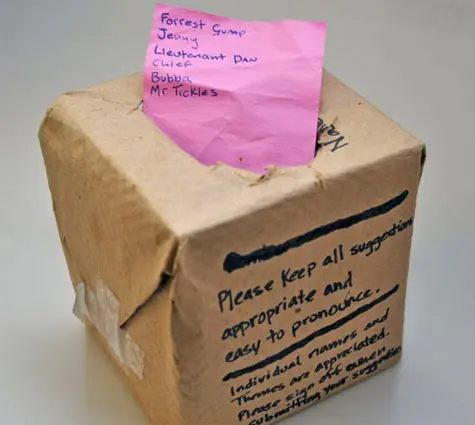 Forrest Gump
Jenny
Lieutenant Dan
Chief
Bubba
Mr Tickles
Please Keep all suggestions
appropriate and
easy to pronounce.
Individual names and
Themes are appreciated.
Please sign off when
submitting your suggestion